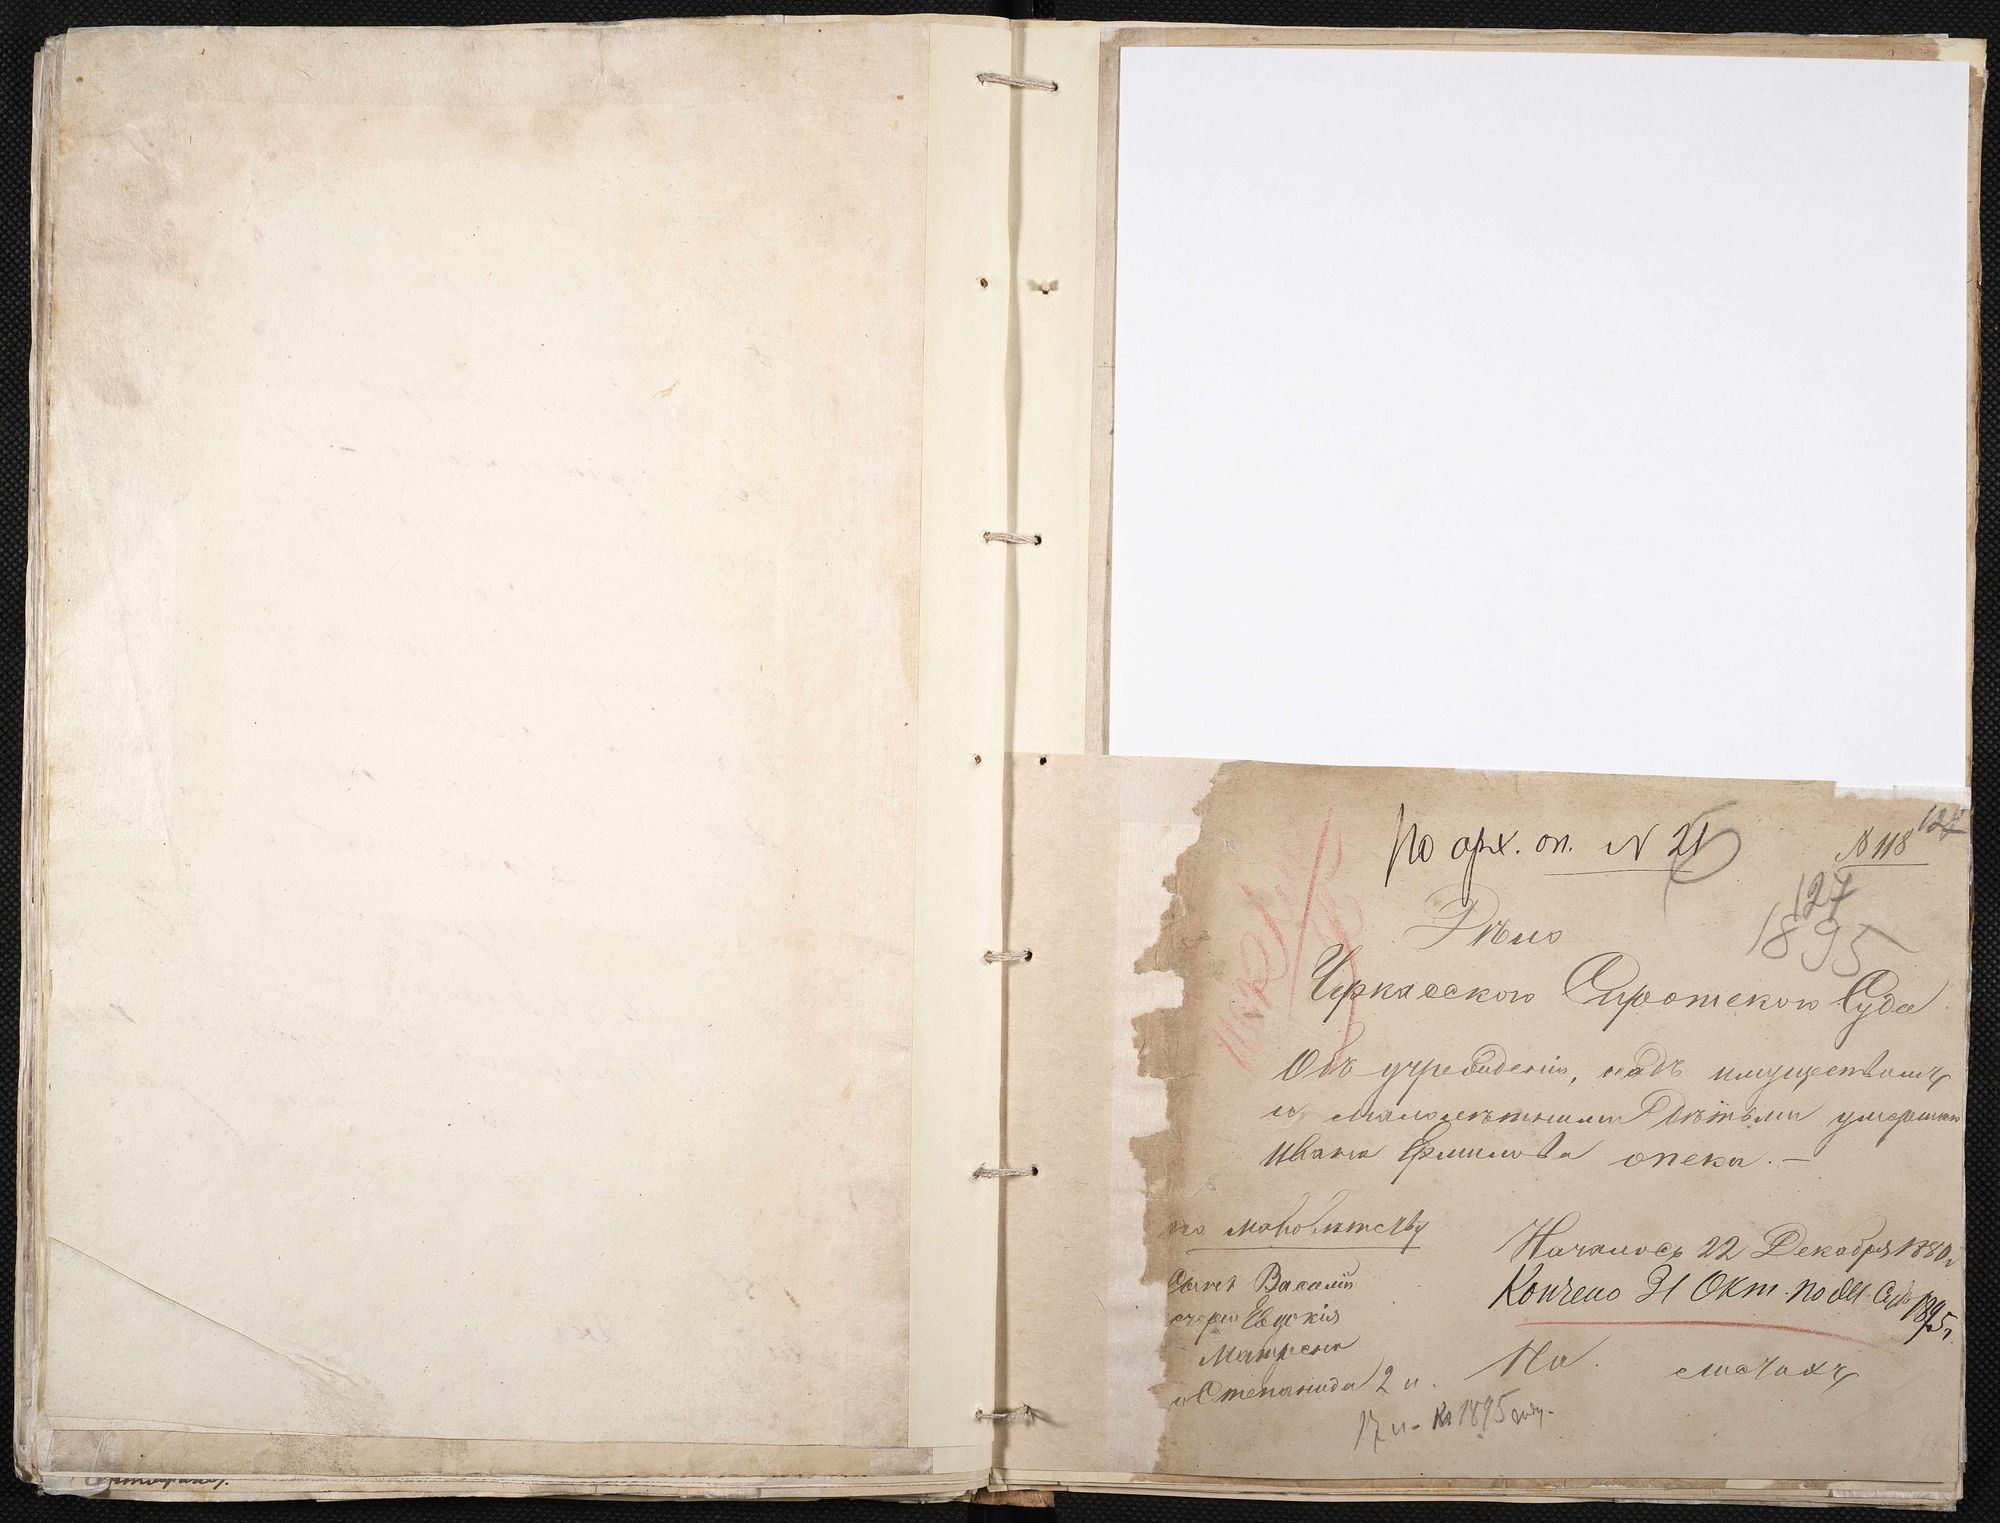 По арх. оп. N 21
№ 118
127
127
1895
Дѣло
Черкасскаго Сиротскаго Суда
Объ учрежденіи, надъ имуществомъ
и малолѣтними Дѣтьми умершаго
Ивана Ермилова опеки. —
по малолѣтству
Сынъ Василій
Евдокія
Матрена
и Степанида 2 л.
Началось 22 Декабря 1880 г.
Кончено 31 Окт. 1895 г.
На листахъ
17 л. 1895 году.